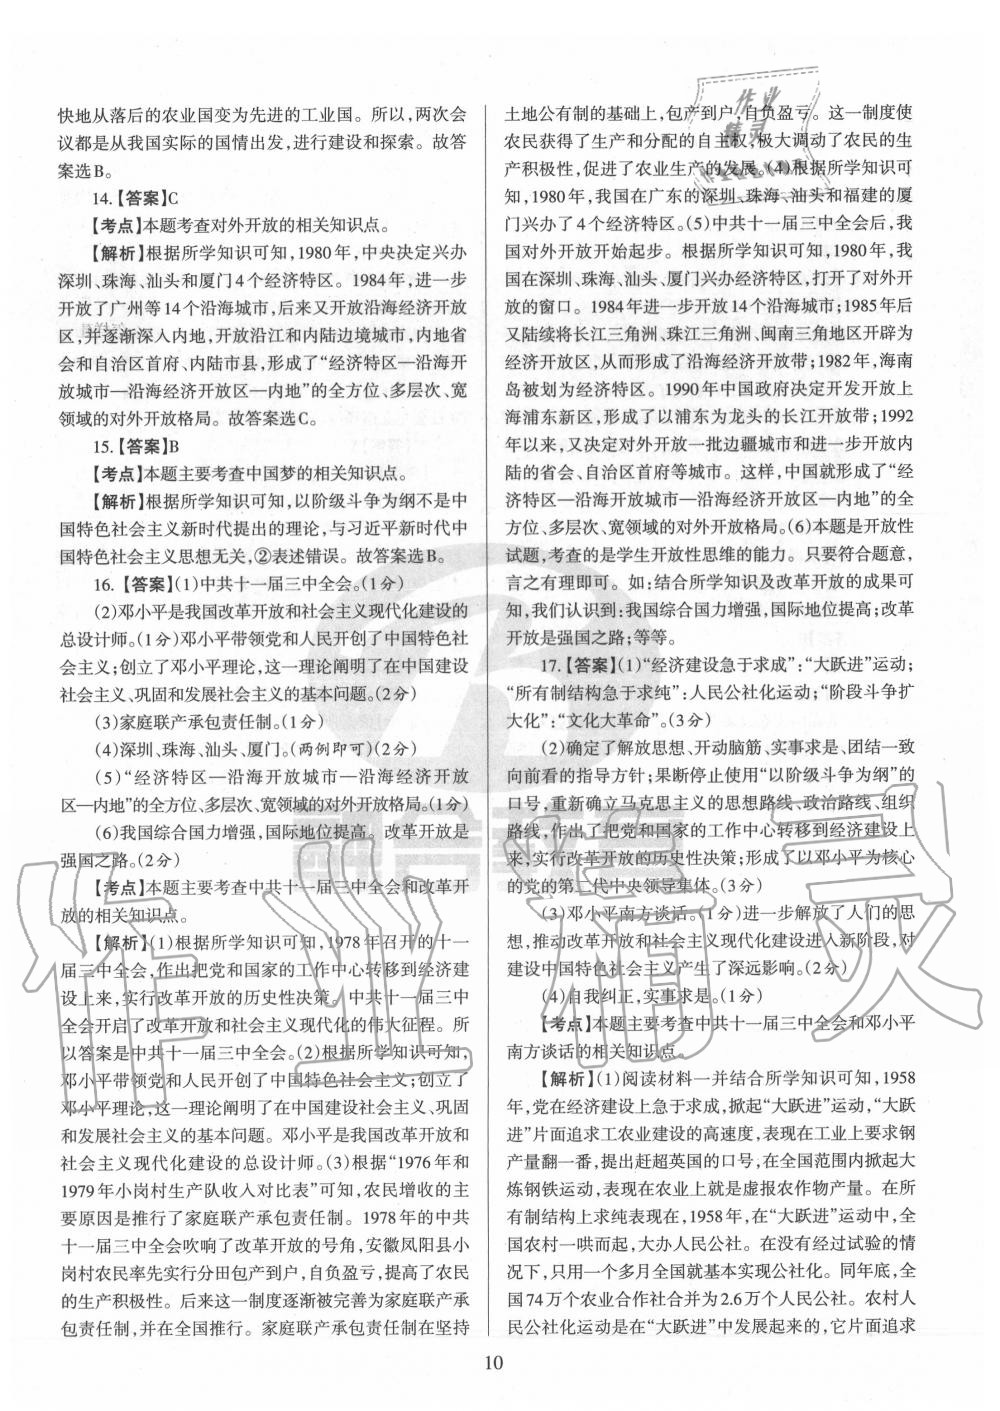 快地从落后的农业国变为先进的工业国。所以,两次会
议都是从我国实际的国情出发,进行建设和探索。故答
案选B。
14.【答案】C
【考点】本题考查对外开放的相关知识点。
【解析】根据所学知识可知,1980年,中央决定兴办
深圳、珠海、汕头和厦门4个经济特区。1984年,进一步
开放了广州等14个沿海城市,后来又开放沿海经济开放
区,并逐渐深入内地,开放沿江和内陆边境城市,内地省
会和自治区首府、内陆市县,形成了“经济特区—沿海开
放城市—沿海经济开放区—内地”的全方位、多层次、宽
领域的对外开放格局。故答案选C。
15.【答案】B
【考点】本题主要考查中国梦的相关知识点。
【解析】根据所学知识可知,以阶级斗争为纲不是中
国特色社会主义新时代提出的理论,与习近平新时代中
国特色社会主义思想无关,②表述错误。故答案选B。
16.【答案】(1)中共十一届三中全会。(1分)
(2)邓小平是我国改革开放和社会主义现代化建设的
总设计师。(1分)邓小平带领党和人民开创了中国特色社
会主义;创立了邓小平理论,这一理论阐明了在中国建设
社会主义、巩固和发展社会主义的基本问题。(2分)
(3)家庭联产承包责任制。(1分)
(4)深圳、珠海、汕头、厦门。(两例即可)(2分)
(5)“经济特区—沿海开放城市—沿海经济开放
区—内地”的全方位、多层次、宽领域的对外开放格局。(1分)
(6)我国综合国力增强,国际地位提高。改革开放是
强国之路。(2分)
【考点】本题主要考查中共十一届三中全会和改革开
放的相关知识点。
【解析】(1)根据所学知识可知,1978年召开的十一
届三中全会,作出把党和国家的工作中心转移到经济建
设上来,实行改革开放的历史性决策。中共十一届三中
全会开启了改革开放和社会主义现代化的伟大征程。所
以答案是中共十一届三中全会。(2)根据所学知识可知,
邓小平带领党和人民开创了中国特色社会主义;创立了
邓小平理论,这一理论阐明了在中国建设社会主义、巩固
和发展社会主义的基本问题。邓小平是我国改革开放和
社会主义现代化建设的总设计师。(3)根据“1976年和
1979年小岗村生产队收入对比表”可知,农民增收的主
要原因是推行了家庭联产承包责任制。1978年的中共
十一届三中全会吹响了改革开放的号角,安徽凤阳县小
岗村农民率先实行分田包产到户,自负盈亏,调动了农民
的生产积极性。后来这一制度逐渐被完善为家庭联产承
包责任制,并在全国推行。家庭联产承包责任制在坚持
土地公有制的基础上,包产到户,自负盈亏。这一制度使
农民获得了生产和分配的自主权,极大调动了农民的生
产积极性,促进了农业生产的发展。(4)根据所学知识可
知,1980年,我国在广东的深圳、珠海、汕头和福建的厦
门兴办了4个经济特区。(5)中共十一届三中全会后,我
国对外开放开始起步。根据所学知识可知,1980年,我
国在深圳、珠海、汕头、厦门兴办经济特区,打开了对外开
放的窗口。1984年进一步开放14个沿海城市;1985年后
又陆续将长江三角洲、珠江三角洲、闽南三角地区开辟为
经济开放区,从而形成了沿海经济开放带;1982年,海南
岛被划为经济特区。1990年中国政府决定开发开放上
海浦东新区,形成了以浦东为龙头的长江开放带;1992
年以来,又决定对外开放一批边疆城市和进一步开放内
陆的省会、自治区首府等城市。这样,中国就形成了“经
济特区—沿海开放城市—沿海经济开放区—内地”的全
方位、多层次、宽领域的对外开放格局。(6)本题是开放性
试题,考查的是学生开放性思维的能力。只要符合题意,
言之有理即可。如:结合所学知识及改革开放的成果可
知,我们认识到:我国综合国力增强,国际地位提高;改革
开放是强国之路;等等。
17.【答案】(1)“经济建设急于求成”:“大跃进”运动;
“所有制结构急于求纯”:人民公社化运动;“阶段斗争扩
大化”:“文化大革命”。(3分)
(2)确定了解放思想、开动脑筋、实事求是、团结一致
向前看的指导方针;果断停止使用“以阶级斗争为纲”的
口号,重新确立马克思主义的思想路线、政治路线、组织
路线,作出了把党和国家的工作中心转移到经济建设上
来,实行改革开放的历史性决策;形成了以邓小平为核心
的党的第二代中央领导集体。(3分)
(3)邓小平南方谈话。(1分)进一步解放了人们的思
想,推动改革开放和社会主义现代化建设进入新阶段,对
建设中国特色社会主义产生了深远影响。(2分)
(4)自我纠正,实事求是。(1分)
【考点】本题主要考查中共十一届三中全会和邓小平
南方谈话的相关知识点。
【解析】(1)阅读材料一并结合所学知识可知,1958
年,党在经济建设上急于求成,掀起“大跃进”运动,“大跃
进”片面追求工农业建设的高速度,表现在工业上要求钢
产量翻一番,提出赶超英国的口号;在全国范围内掀起大
炼钢铁运动,表现在农业上就是虚报农作物产量。在所
有制结构上求纯表现在,1958年,在“大跃进”运动中,全
国农村一哄而起,大办人民公社。在没有经过试验的情
况下,只用一个多月全国就基本实现公社化。同年底,全
国74万个农业合作社合并为2.6万个人民公社。农村人
民公社化运动是在“大跃进”中发展起来的,它片面追求
10
作业精灵
作业
精灵